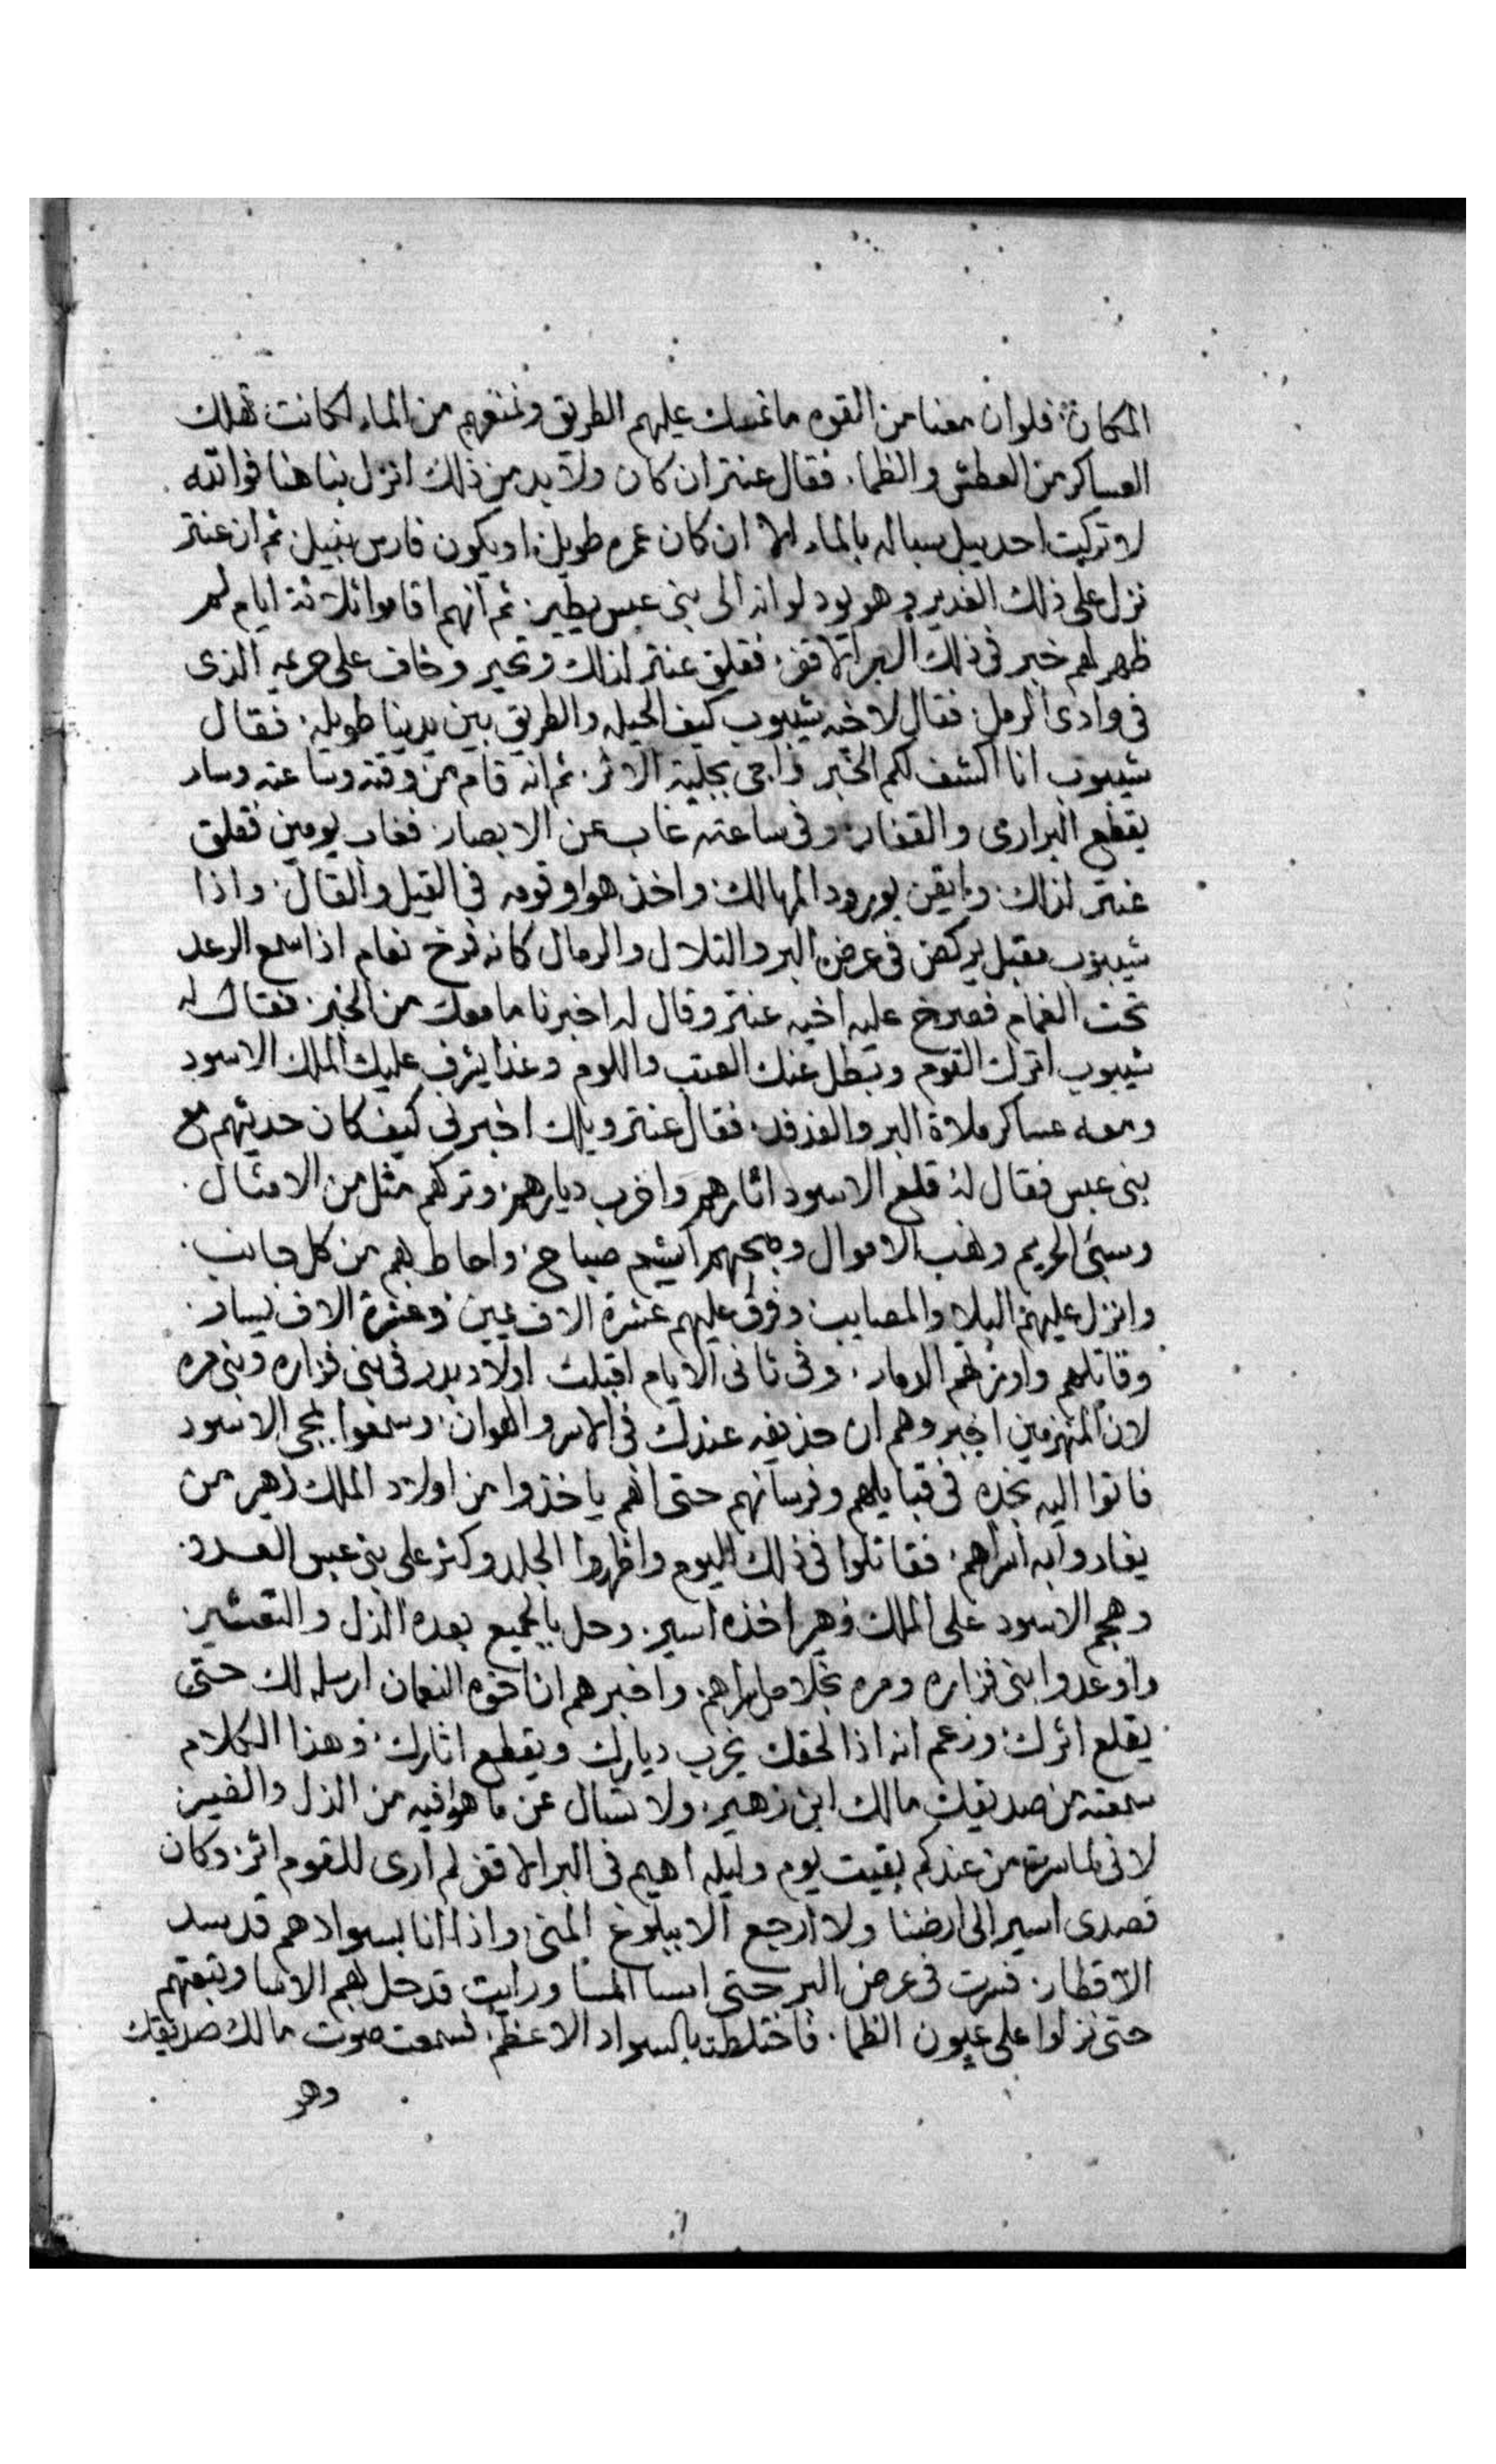 المكان فلوان معنا من القوم ما نمسك عليهم الطريق ونمنعهم من الماء لكانت تهلك
العساكر من العطش والظما. فقال عنتر ان كان ولا بد من ذلك انزل بنا هنا فوالله
لا تركت احد يبل سباله بالماء الا ان كان عمره طويل او يكون فارس نبيل ثم ان عنتر
نزل على ذلك الغدير وهو يود لو انه الى بنى عبس يطير. ثم انهم اقاموا ثلاثة ايام لم
ظهر لهم خبر فى ذلك البر الاقفر. فقلق عنتر لذلك وتحير وخاف على حريمه الذى
فى وادى الرمل. فقال لاخيه شيبوب كيف الحيله والطريق بين يدينا طويله. فقال
شيبوب انا اكشف لكم الخبر واجى بجلية الاثر. ثم انه قام من وقته وساعته وسار
يقطع البرارى والقفار وفى ساعته غاب عن الابصار. فغاب يومين فقلق
عنتر لذلك. وايقن بورود المهالك. واخذ هوا وقومه فى القيل والقال. واذا
شيبوب مقبل يركض فى عرض البر والتلال والرمال كانه فرخ نعام اذا سمع الرعد
تحت الغمام فصرخ عليه اخيه عنتر وقال له اخبرنا ما معك من الخبر. فقال له
شيبوب اترك القوم وبطل عنك العتب واللوم وغدا يشرف عليك الملك الاسود
ومعه عساكر ملاة البر والفدفد. فقال عنتر ويلك اخبرنى كيف كان حديثهم مع
بنى عبس فقال له قلع الاسود اثارهم واخرب ديارهم. وتركهم مثل من الامثال.
وسبى الحريم ونهب الاموال وصبحهم اشيم صباح. واحاط بهم من كل جانب.
وانزل عليهم البلا والمصايب وفرق عليهم عشرة الاف يمين وعشرة الاف يسار.
وقاتلهم واورثهم الدمار. وفى ثانى الايام اقبلت اولاد بدر فى بنى فزاره وبنى مره
لان المنهزمين اخبروهم ان حذيفه عندك فى الاسر والهوان. وسمعوا بمجى الاسود
فاتوا اليه نجده فى قبايلهم وفرسانهم حتى انهم ياخذوا من اولاد الملك زهير من
يفادوا به اسراهم. فقاتلوا فى ذلك اليوم واظهروا الجلد وكثر على بنى عبس العدد.
وهجم الاسود على الملك زهير اخذه اسير. وحل بالجميع بعده الذل والتعثير.
واوعدوا بنى فزاره ومره بخلاص اسراهم. واخبرهم ان اخوه النعمان ارسله لك حتى
يقلع اثرك. وزعم انه اذا لحقك يخرب ديارك ويقطع اثارك. وهذا الكلام
سمعته من صديقك مالك ابن زهير. ولا تسال عن ما هوا فيه من الذل والضير
لانى لما سرت من عندكم بقيت يوم وليله اهيم فى البر الاقفر لم ارى للقوم اثر. وكان
قصدى اسير الى ارضنا ولا ارجع الا ببلوغ المنى واذا انا بسوادهم قد سد
الاقطار. فسرت فى عرض البر حتى امسا المسا ورايت قد حل بهم الاسا وتبعتهم
حتى نزلوا على عيون الظبا. فاختلطت بالسواد الاعظم. فسمعت صوت مالك صديقك
وهو